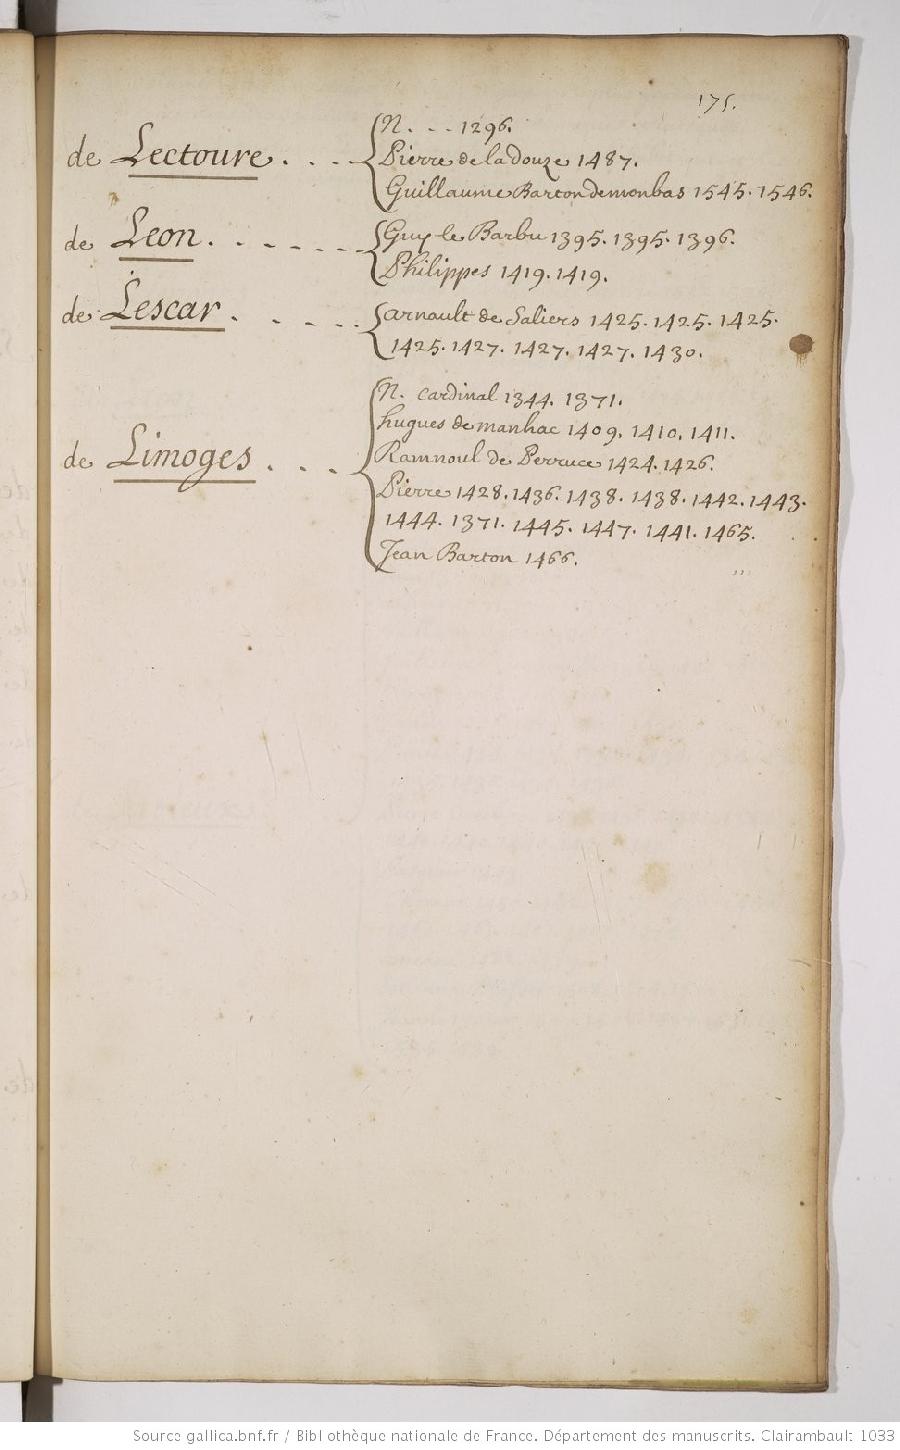 175.
N. . . . 1296.
de Lectoure . . . . Pierre de la Douze 1487.
Guillaume Barton de monbas 1545. 1546.
de Leon. . . . . . . Guy le Barbu 1395. 1395. 1396.
Philippes 1419. 1419.
de Lescar . . . . . . arnault de Saliers 1425. 1425. 1425.
1425. 1427. 1427. 1427. 1430.
N. cardinal 1344. 1371.
hugues de manhac 1409. 1410. 1411.
de Limoges . . . Ramnoul de Perruce 1424. 1426.
Pierre 1428. 1436. 1438. 1438. 1442. 1443.
1444. 1371. 1445. 1447. 1441. 1465.
Jean Barton 1466.
Source gallica.bnf.fr / Bibliothèque nationale de France. Département des manuscrits. Clairambault 1033